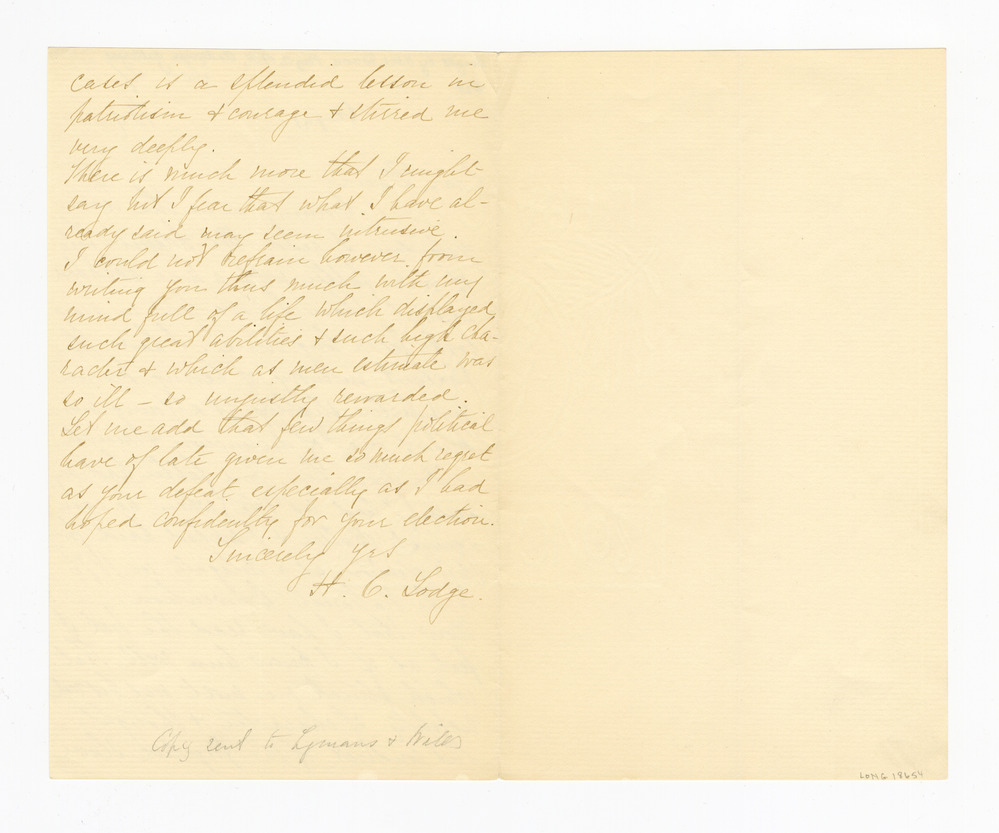 cases is a splendid lesson in
patriotism & courage & stirred me
very deeply.
There is much more that I might
say but I fear that what I have al-
ready said may seem intrusive.
I could not refrain however from
writing you thus much with my
mind full of a life which displayed
such great abilities & such high cha-
racter & which as men estimate was
so ill – so unjustly rewarded.
Let me add that few things political
have of late given me so much regret
as your defeat especially as I had
hoped confidently for your election.
Sincerely yrs
H. C. Lodge.
Copy sent to Lymans & Wilds
LONG 18654